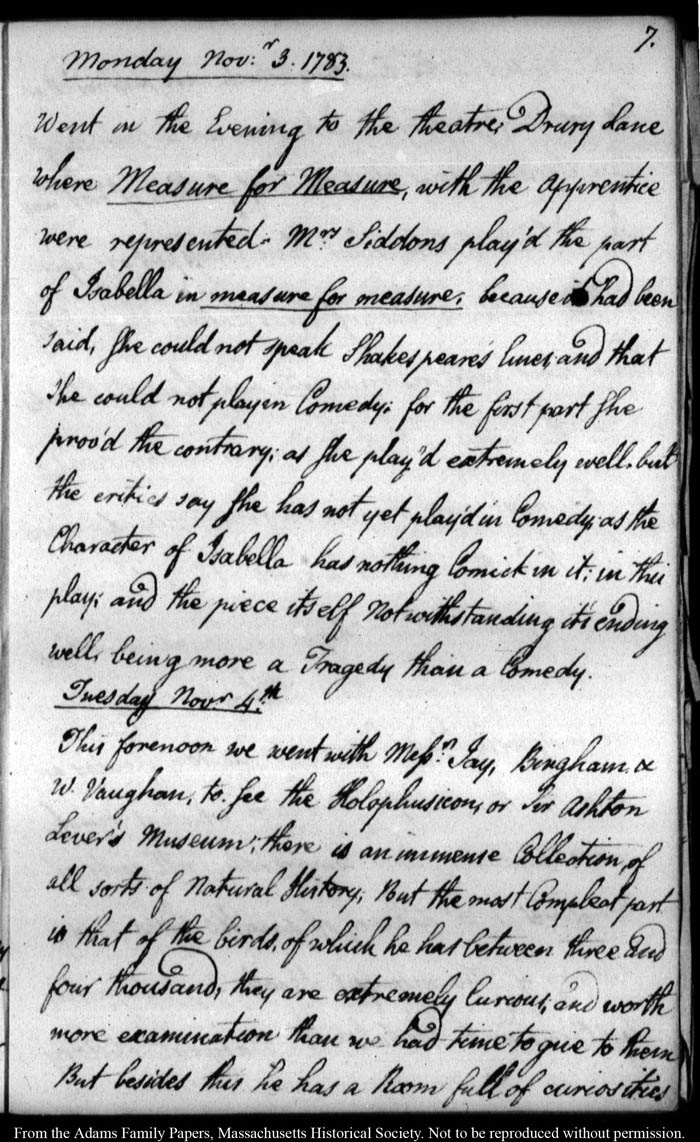 7.
Monday Nov:r 3. 1783.
Went in the Evening to the theatre, Drury Lane
where Measure for Measure, with the Apprentice
were represented. Mrs: Siddons play'd the part
of Isabella in measure for measure, because it had been
said, she could not speak Shakespeare's lines, and that
she could not play in Comedy; for the first part she
prov'd the contrary; as she play'd extremely well. but
the critics say she has not yet play'd in Comedy, as the
Character of Isabella has nothing Comick in it; in this
play; and the piece itself Notwithstanding it's ending
well, being more a Tragedy than a Comedy.
Tuesday Novr. 4.th
This forenoon we went with Messrs. Jay, Bingham &
W. Vaughan, to see the Holophusicon, or Sir Ashton
Lever's Museum; there is an immense Collection, of
all sorts of Natural History, But the most Compleat part
is that of the birds, of which he has between three and
four thousand, they are extremely Curious, and worth
more examination than we had time to give to them
But besides this he has a Room full of curiosities
From the Adams Family Papers, Massachusetts Historical Society. Not to be reproduced without permission.